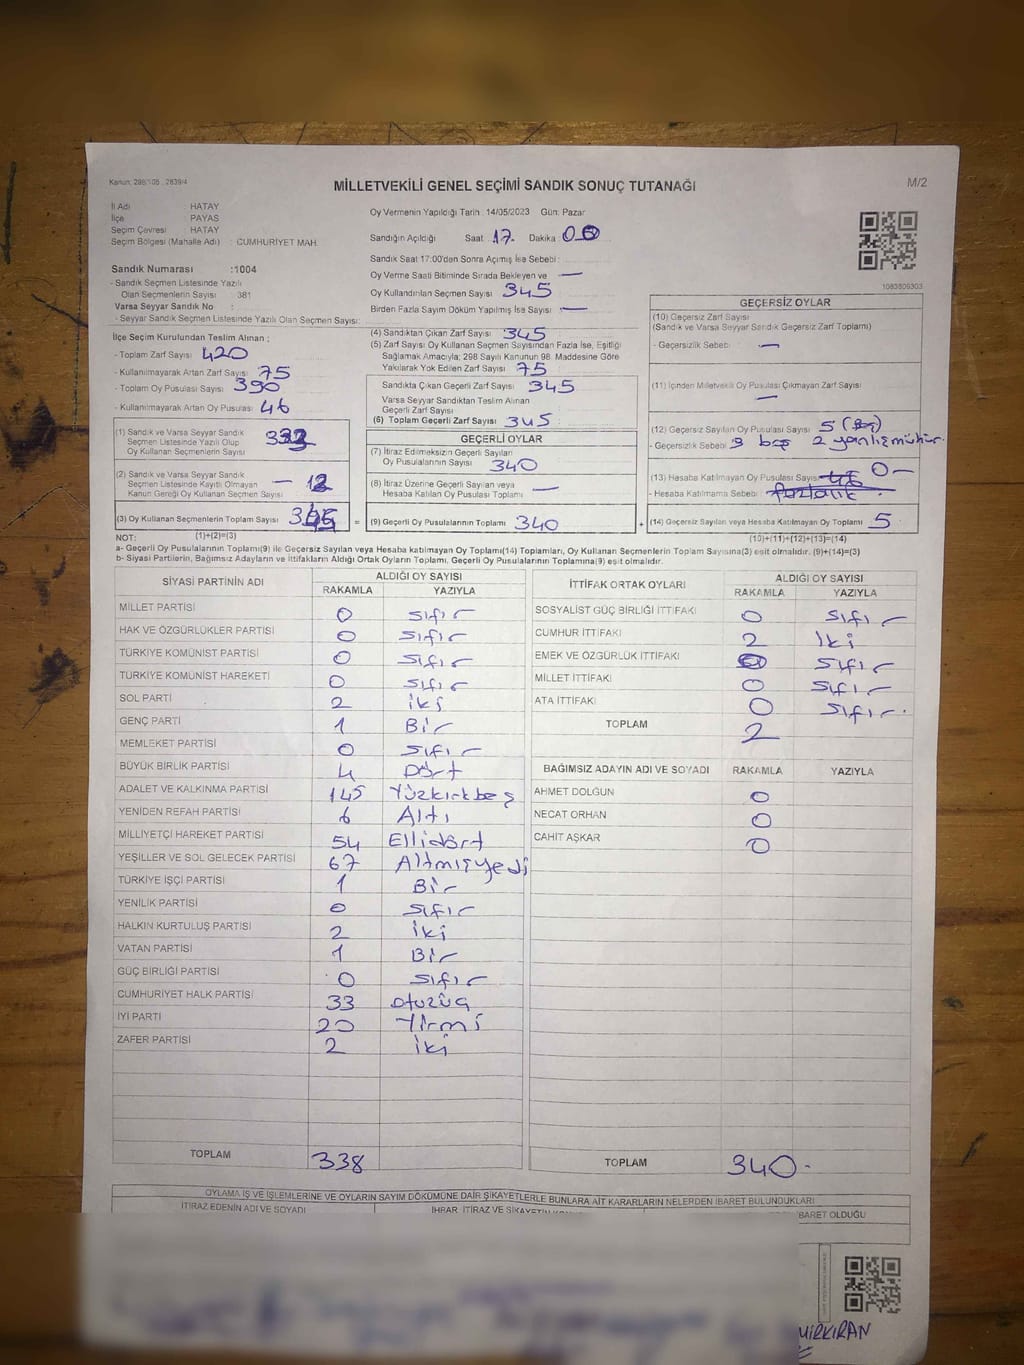 Kanun: 298/105 , 2839/4
MİLLETVEKİLİ GENEL SEÇİMİ SANDIK SONUÇ TUTANAĞI
M/2
İl Adı : HATAY
İlçe : PAYAS
Seçim Çevresi : HATAY
Seçim Bölgesi (Mahalle Adı) : CUMHURİYET MAH.
Sandık Numarası :1004
- Sandık Seçmen Listesinde Yazılı
Olan Seçmenlerin Sayısı : 381
Varsa Seyyar Sandık No :
- Seyyar Sandık Seçmen Listesinde Yazılı Olan Seçmen Sayısı:
Oy Vermenin Yapıldığı Tarih : 14/05/2023 Gün: Pazar
Sandığın Açıldığı Saat : 17 Dakika : 00
Sandık Saat 17:00'den Sonra Açılmış İse Sebebi :
Oy Verme Saati Bitiminde Sırada Bekleyen ve —
Oy Kullandırılan Seçmen Sayısı : 345
Birden Fazla Sayım Döküm Yapılmış İse Sayısı : —
1083809303
İlçe Seçim Kurulundan Teslim Alınan ;
- Toplam Zarf Sayısı : 420
- Kullanılmayarak Artan Zarf Sayısı : 75
- Toplam Oy Pusulası Sayısı : 390
- Kullanılmayarak Artan Oy Pusulası : 46
(1) Sandık ve Varsa Seyyar Sandık
Seçmen Listesinde Yazılı Olup
Oy Kullanan Seçmenlerin Sayısı
(2) Sandık ve Varsa Seyyar Sandık
Seçmen Listesinde Kayıtlı Olmayan
Kanun Gereği Oy Kullanan Seçmen Sayısı — 12
(3) Oy Kullanan Seçmenlerin Toplam Sayısı
(1)+(2)=(3)
(4) Sandıktan Çıkan Zarf Sayısı : 345
(5) Zarf Sayısı Oy Kullanan Seçmen Sayısından Fazla İse, Eşitliği
Sağlamak Amacıyla; 298 Sayılı Kanunun 98. Maddesine Göre
Yakılarak Yok Edilen Zarf Sayısı : 75
Sandıkta Çıkan Geçerli Zarf Sayısı : 345
Varsa Seyyar Sandıktan Teslim Alınan
Geçerli Zarf Sayısı :
(6) Toplam Geçerli Zarf Sayısı : 345
GEÇERLİ OYLAR
(7) İtiraz Edilmeksizin Geçerli Sayılan
Oy Pusulalarının Sayısı : 340
(8) İtiraz Üzerine Geçerli Sayılan veya
Hesaba Katılan Oy Pusulası Toplamı : —
= (9) Geçerli Oy Pusulalarının Toplamı : 340 +
GEÇERSİZ OYLAR
(10) Geçersiz Zarf Sayısı :
(Sandık ve Varsa Seyyar Sandık Geçersiz Zarf Toplamı)
- Geçersizlik Sebebi : —
(11) İçinden Milletvekili Oy Pusulası Çıkmayan Zarf Sayısı :
—
(12) Geçersiz Sayılan Oy Pusulası Sayısı : 5 (Beş)
- Geçersizlik Sebebi : 3 boş 2 yanlış mühür.
(13) Hesaba Katılmayan Oy Pusulası Sayısı : 46 0 —
- Hesaba Katılmama Sebebi : fazlalık
(14) Geçersiz Sayılan veya Hesaba Katılmayan Oy Toplamı : 5
(10)+(11)+(12)+(13)=(14)
NOT:
a- Geçerli Oy Pusulalarının Toplamı(9) ile Geçersiz Sayılan veya Hesaba katılmayan Oy Toplamı(14) Toplamları, Oy Kullanan Seçmenlerin Toplam Sayısına(3) eşit olmalıdır. (9)+(14)=(3)
b- Siyasi Partilerin, Bağımsız Adayların ve İttifakların Aldığı Ortak Oyların Toplamı, Geçerli Oy Pusulalarının Toplamına(9) eşit olmalıdır.
SİYASİ PARTİNİN ADI ALDIĞI OY SAYISI
RAKAMLA YAZIYLA
MİLLET PARTİSİ 0 Sıfır
HAK VE ÖZGÜRLÜKLER PARTİSİ 0 Sıfır
TÜRKİYE KOMÜNİST PARTİSİ 0 Sıfır
TÜRKİYE KOMÜNİST HAREKETİ 0 Sıfır
SOL PARTİ 2 iki
GENÇ PARTİ 1 Bir
MEMLEKET PARTİSİ 0 Sıfır
BÜYÜK BİRLİK PARTİSİ 4 Dört
ADALET VE KALKINMA PARTİSİ 145 Yüzkırkbeş
YENİDEN REFAH PARTİSİ 6 Altı
MİLLİYETÇİ HAREKET PARTİSİ 54 Ellidört
YEŞİLLER VE SOL GELECEK PARTİSİ 67 Altmışyedi
TÜRKİYE İŞÇİ PARTİSİ 1 Bir
YENİLİK PARTİSİ 0 Sıfır
HALKIN KURTULUŞ PARTİSİ 2 iki
VATAN PARTİSİ 1 Bir
GÜÇ BİRLİĞİ PARTİSİ 0 Sıfır
CUMHURİYET HALK PARTİSİ 33 otuzüç
İYİ PARTİ 20 Yirmi
ZAFER PARTİSİ 2 iki
TOPLAM 338
İTTİFAK ORTAK OYLARI ALDIĞI OY SAYISI
RAKAMLA YAZIYLA
SOSYALİST GÜÇ BİRLİĞİ İTTİFAKI 0 Sıfır
CUMHUR İTTİFAKI 2 İki
EMEK VE ÖZGÜRLÜK İTTİFAKI 0 Sıfır
MİLLET İTTİFAKI 0 Sıfır
ATA İTTİFAKI 0 Sıfır.
TOPLAM 2
BAĞIMSIZ ADAYIN ADI VE SOYADI RAKAMLA YAZIYLA
AHMET DOLGUN 0
NECAT ORHAN 0
CAHİT AŞKAR 0
TOPLAM 340.
OYLAMA İŞ VE İŞLEMLERİNE VE OYLARIN SAYIM DÖKÜMÜNE DAİR ŞİKAYETLERLE BUNLARA AİT KARARLARIN NELERDEN İBARET BULUNDUKLARI
İTİRAZ EDENİN ADI VE SOYADI İHBAR, İTİRAZ VE ŞİKAYETİN BARET OLDUĞU